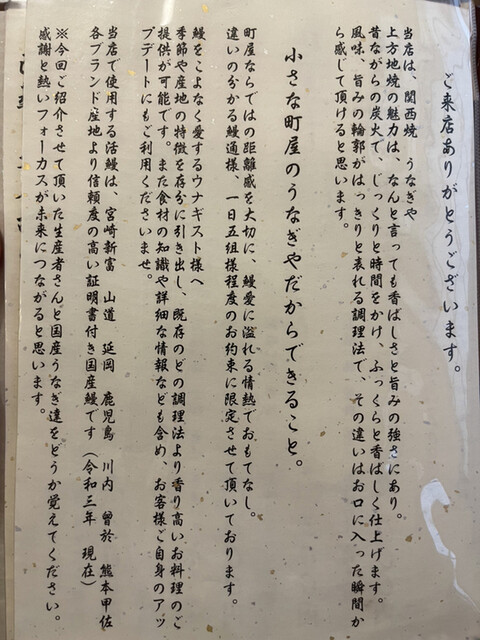 ご来店ありがとうございます。
当店は、関西焼　うなぎや
上方地焼の魅力は、なんと言っても香ばしさと旨みの強さにあり。
昔ながらの炭火で、じっくりと時間をかけ、ふっくらと香ばしく仕上げます。
風味、旨みの輪郭がはっきりと表れる調理法で、その違いはお口に入った瞬間か
ら感じて頂けると思います。
小さな町屋のうなぎやだからできること。
町屋ならではの距離感を大切に、鰻愛に溢れる情熱でおもてなし。
違いの分かる鰻通様、一日五組様程度のお約束に限定させて頂いております。
鰻をこよなく愛するウナギスト様へ
季節や産地の特徴を存分に引き出し、既存のどの調理法より香り高いお料理のご
提供が可能です。また食材の知識や詳細な情報なども含め、お客様ご自身のアッ
プデートにもご利用くださいませ。
当店で使用する活鰻は、宮崎新富　山道　延岡　鹿児島　川内　曾於　熊本甲佐
各ブランド産地より信頼度の高い証明書付き国産鰻です（令和三年　現在）
※今回ご紹介させて頂いた生産者さんと国産うなぎ達をどうか覚えてください。
感謝と熱いフォーカスが未来につながると思います。